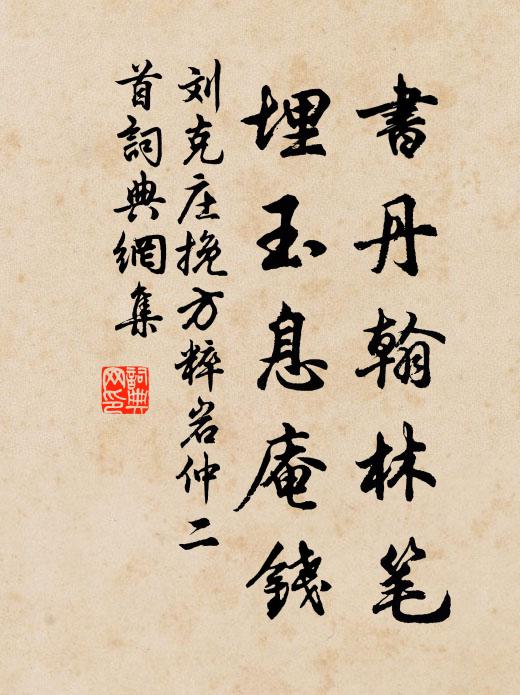 書丹翰林笔
埋玉息庵錢
刘克庄挽方粹岩仲二
首詞典網集
詞典网印